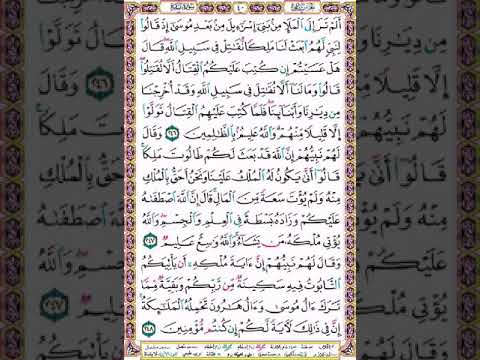 ٤٠
أَلَمْ تَرَ إِلَى ٱلْمَلَإِ مِنۢ بَنِىٓ إِسْرَٰٓءِيلَ مِنۢ بَعْدِ مُوسَىٰٓ إِذْ قَالُوا۟
لِنَبِىٍّ لَّهُمُ ٱبْعَثْ لَنَا مَلِكًا نُّقَٰتِلْ فِى سَبِيلِ ٱللَّهِ ۖ قَالَ
هَلْ عَسَيْتُمْ إِن كُتِبَ عَلَيْكُمُ ٱلْقِتَالُ أَلَّا تُقَٰتِلُوا۟ ۖ
قَالُوا۟ وَمَا لَنَآ أَلَّا نُقَٰتِلَ فِى سَبِيلِ ٱللَّهِ وَقَدْ أُخْرِجْنَا
مِن دِيَٰرِنَا وَأَبْنَآئِنَا ۖ فَلَمَّا كُتِبَ عَلَيْهِمُ ٱلْقِتَالُ تَوَلَّوْا۟
إِلَّا قَلِيلًا مِّنْهُمْ ۗ وَٱللَّهُ عَلِيمٌۢ بِٱلظَّٰلِمِينَ ٢٤٦ وَقَالَ
لَهُمْ نَبِيُّهُمْ إِنَّ ٱللَّهَ قَدْ بَعَثَ لَكُمْ طَالُوتَ مَلِكًا ۚ
قَالُوٓا۟ أَنَّىٰ يَكُونُ لَهُ ٱلْمُلْكُ عَلَيْنَا وَنَحْنُ أَحَقُّ بِٱلْمُلْكِ
مِنْهُ وَلَمْ يُؤْتَ سَعَةً مِّنَ ٱلْمَالِ ۚ قَالَ إِنَّ ٱللَّهَ ٱصْطَفَىٰهُ
عَلَيْكُمْ وَزَادَهُۥ بَسْطَةً فِى ٱلْعِلْمِ وَٱلْجِسْمِ ۖ وَٱللَّهُ
يُؤْتِى مُلْكَهُۥ مَن يَشَآءُ ۚ وَٱللَّهُ وَٰسِعٌ عَلِيمٌ ٢٤٧
وَقَالَ لَهُمْ نَبِيُّهُمْ إِنَّ ءَايَةَ مُلْكِهِۦٓ أَن يَأْتِيَكُمُ
ٱلتَّابُوتُ فِيهِ سَكِينَةٌ مِّن رَّبِّكُمْ وَبَقِيَّةٌ مِّمَّا
تَرَكَ ءَالُ مُوسَىٰ وَءَالُ هَٰرُونَ تَحْمِلُهُ ٱلْمَلَٰٓئِكَةُ ۚ
إِنَّ فِى ذَٰلِكَ لَءَايَةً لَّكُمْ إِن كُنتُم مُّؤْمِنِينَ ٢٤٨